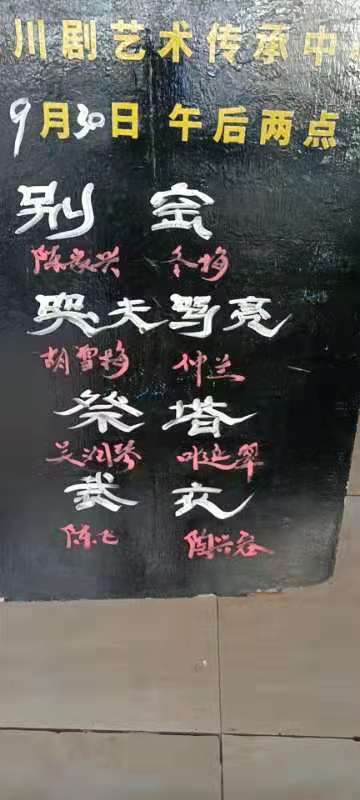 川剧艺术传承中
9月30日 午后两点
别 窑
陈家兴 冬梅
哭夫骂亮
胡雪梅 仲兰
祭塔
吴润琴
武文
陈飞 陶兴容